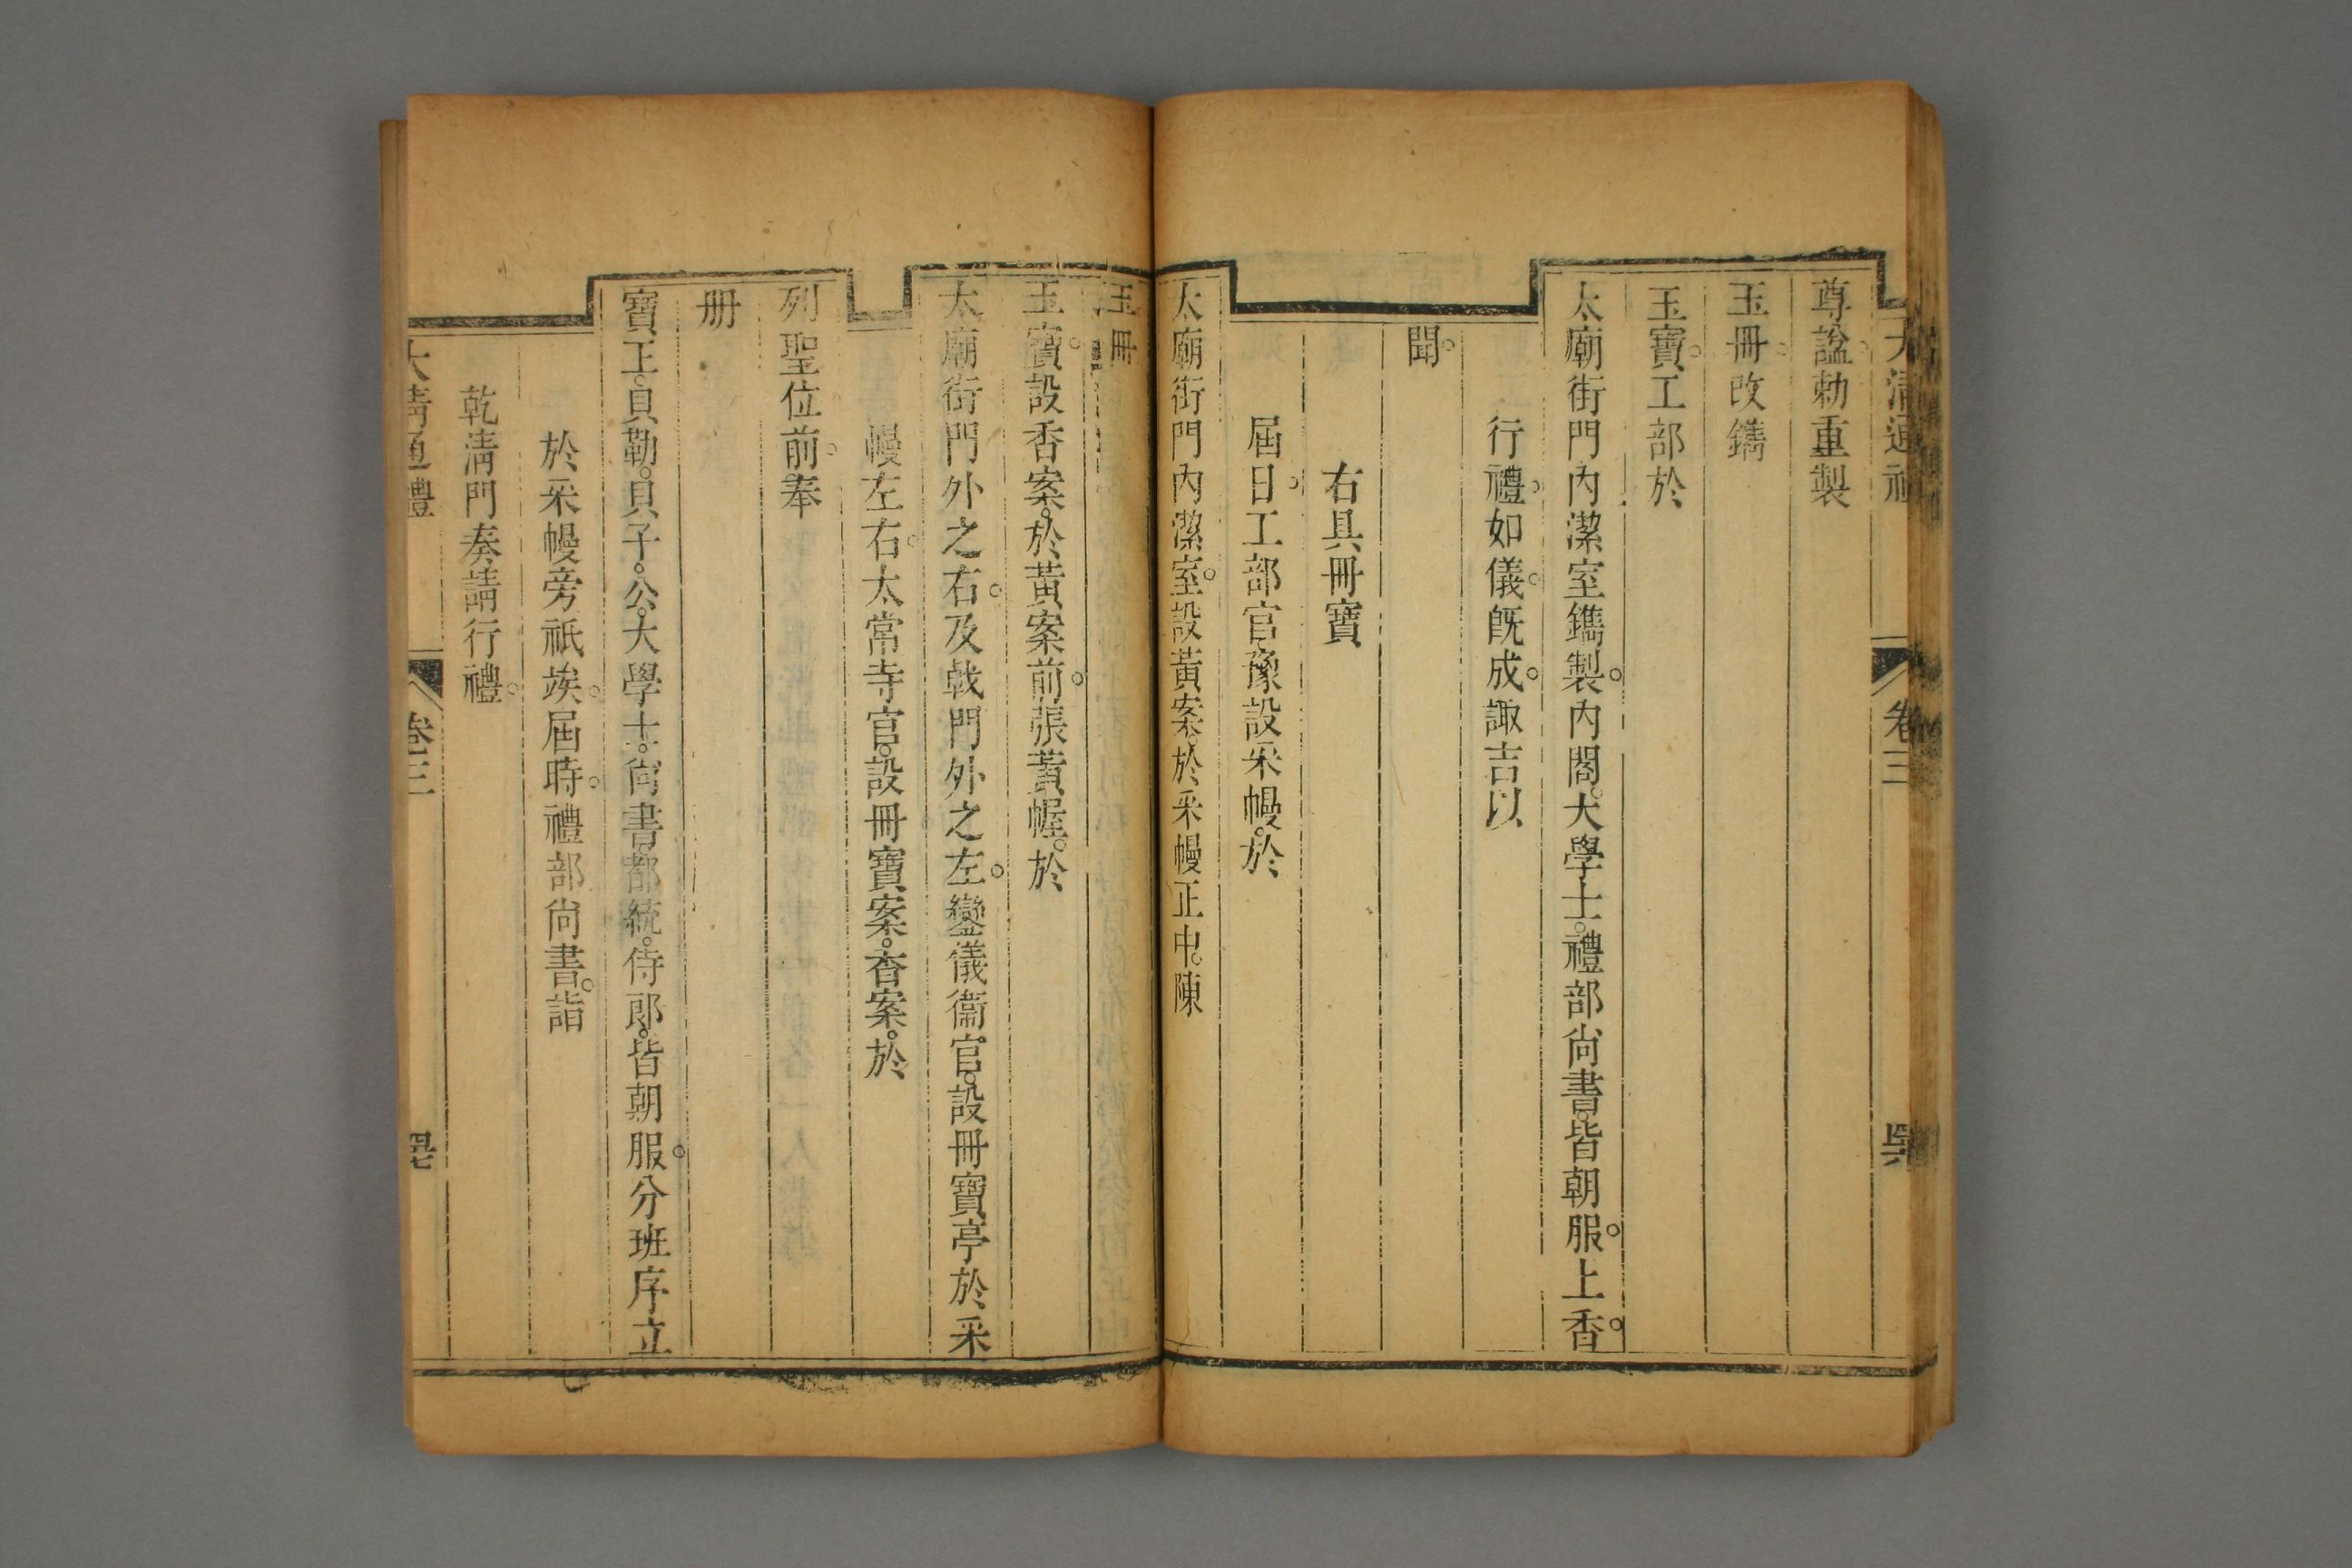 大清通禮 卷三 哭
尊諡。勅重製
玉冊。改鐫
玉寶。工部於
太廟街門內潔室鐫製。內閣。大學士。禮部尙書。皆朝服。上香。
行禮。如儀。旣成。諏吉以
聞。
右具冊寶
屆日。工部官豫設采幔。於
太廟街門內潔室。設黃案。於采幔正中。陳
玉冊
玉寶。設香案。於黃案前。張黃幄。於
太廟街門外之右。及戟門外之左。鑾儀衞官。設冊寶亭於采
幔左右。太常寺官。設冊寶案。香案。於
列聖位前。奉
冊
寶王。貝勒。貝子。公。大學士。尙書。都統。侍郎。皆朝服。分班序立
於采幔旁祇竢。屆時。禮部尙書。詣
乾淸門奏請行禮。
大清通禮 卷三